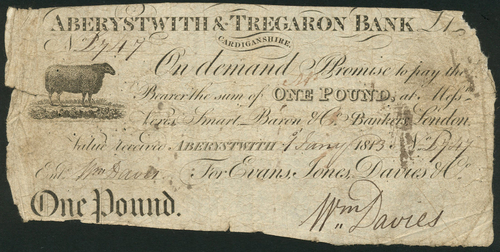 ABERYSTWITH & TREGARON BANK £1
CARDIGANSHIRE.
On demand Promise to pay the
Bearer the sum of ONE POUND, at Mess
Smart, Baron & Co. Bankers London.
Value received ABERYSTWITH 1 Jany 1813
Ent. Wm Davies For Evans, Jones, Davies & Co.
One Pound. Wm Davies